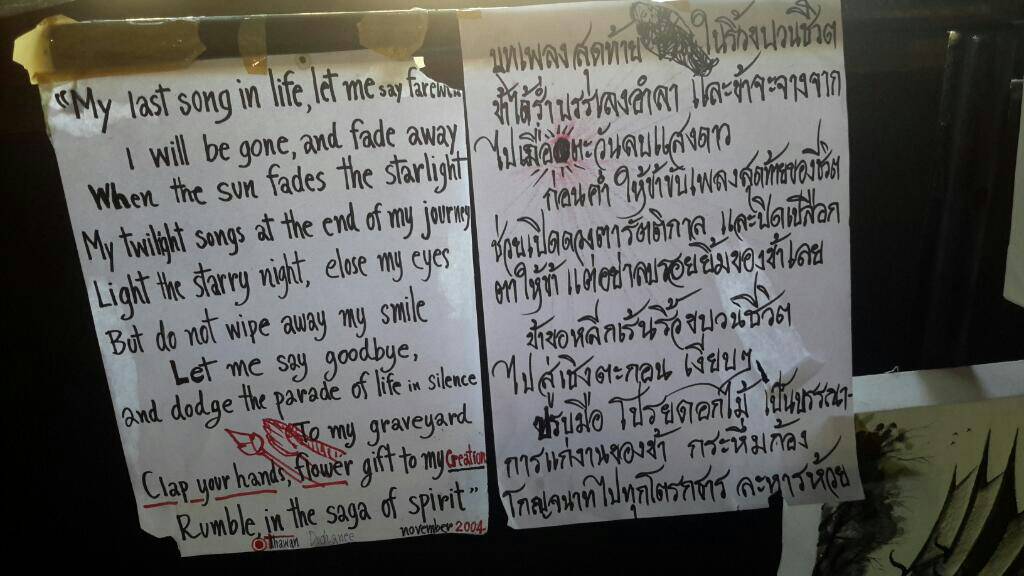 "My last song in life, let me say farewell
I will be gone, and fade away
When the sun fades the starlight
My twilight songs at the end of my journey
Light the starry night, elose my eyes
But do not wipe away my smile
Let me say goodbye,
and dodge the parade of life in silence
To my graveyard
Clap your hands, flower gift to my Creation
Rumble, in the saga of spirit"
november 2004
Thawan Duchanee
บทเพลงสุดท้าย ในริ้วขบวนชีวิต
ข้าได้ร่ำบรรเลงอำลา และข้าจะจางจาก
ไปเมื่อตะวันลบแสงดาว
ก่อนค่ำ ให้ข้าขับเพลงสุดท้ายของชีวิต
ช่วยเปิดดวงตารัตติกาล และปิดเปลือก
ตาให้ข้า แต่อย่าลบรอยยิ้มของข้าเลย
ข้าขอหลีกเร้นริ้วขบวนชีวิต
ไปสู่เชิงตะกอน เงียบๆ
ปรบมือ โปรยดอกไม้ เป็นบรรณา-
การแก่งานของข้า กระหึ่มก้อง
โกญจนาทไปทุกโตรกธาร ละหารห้วย